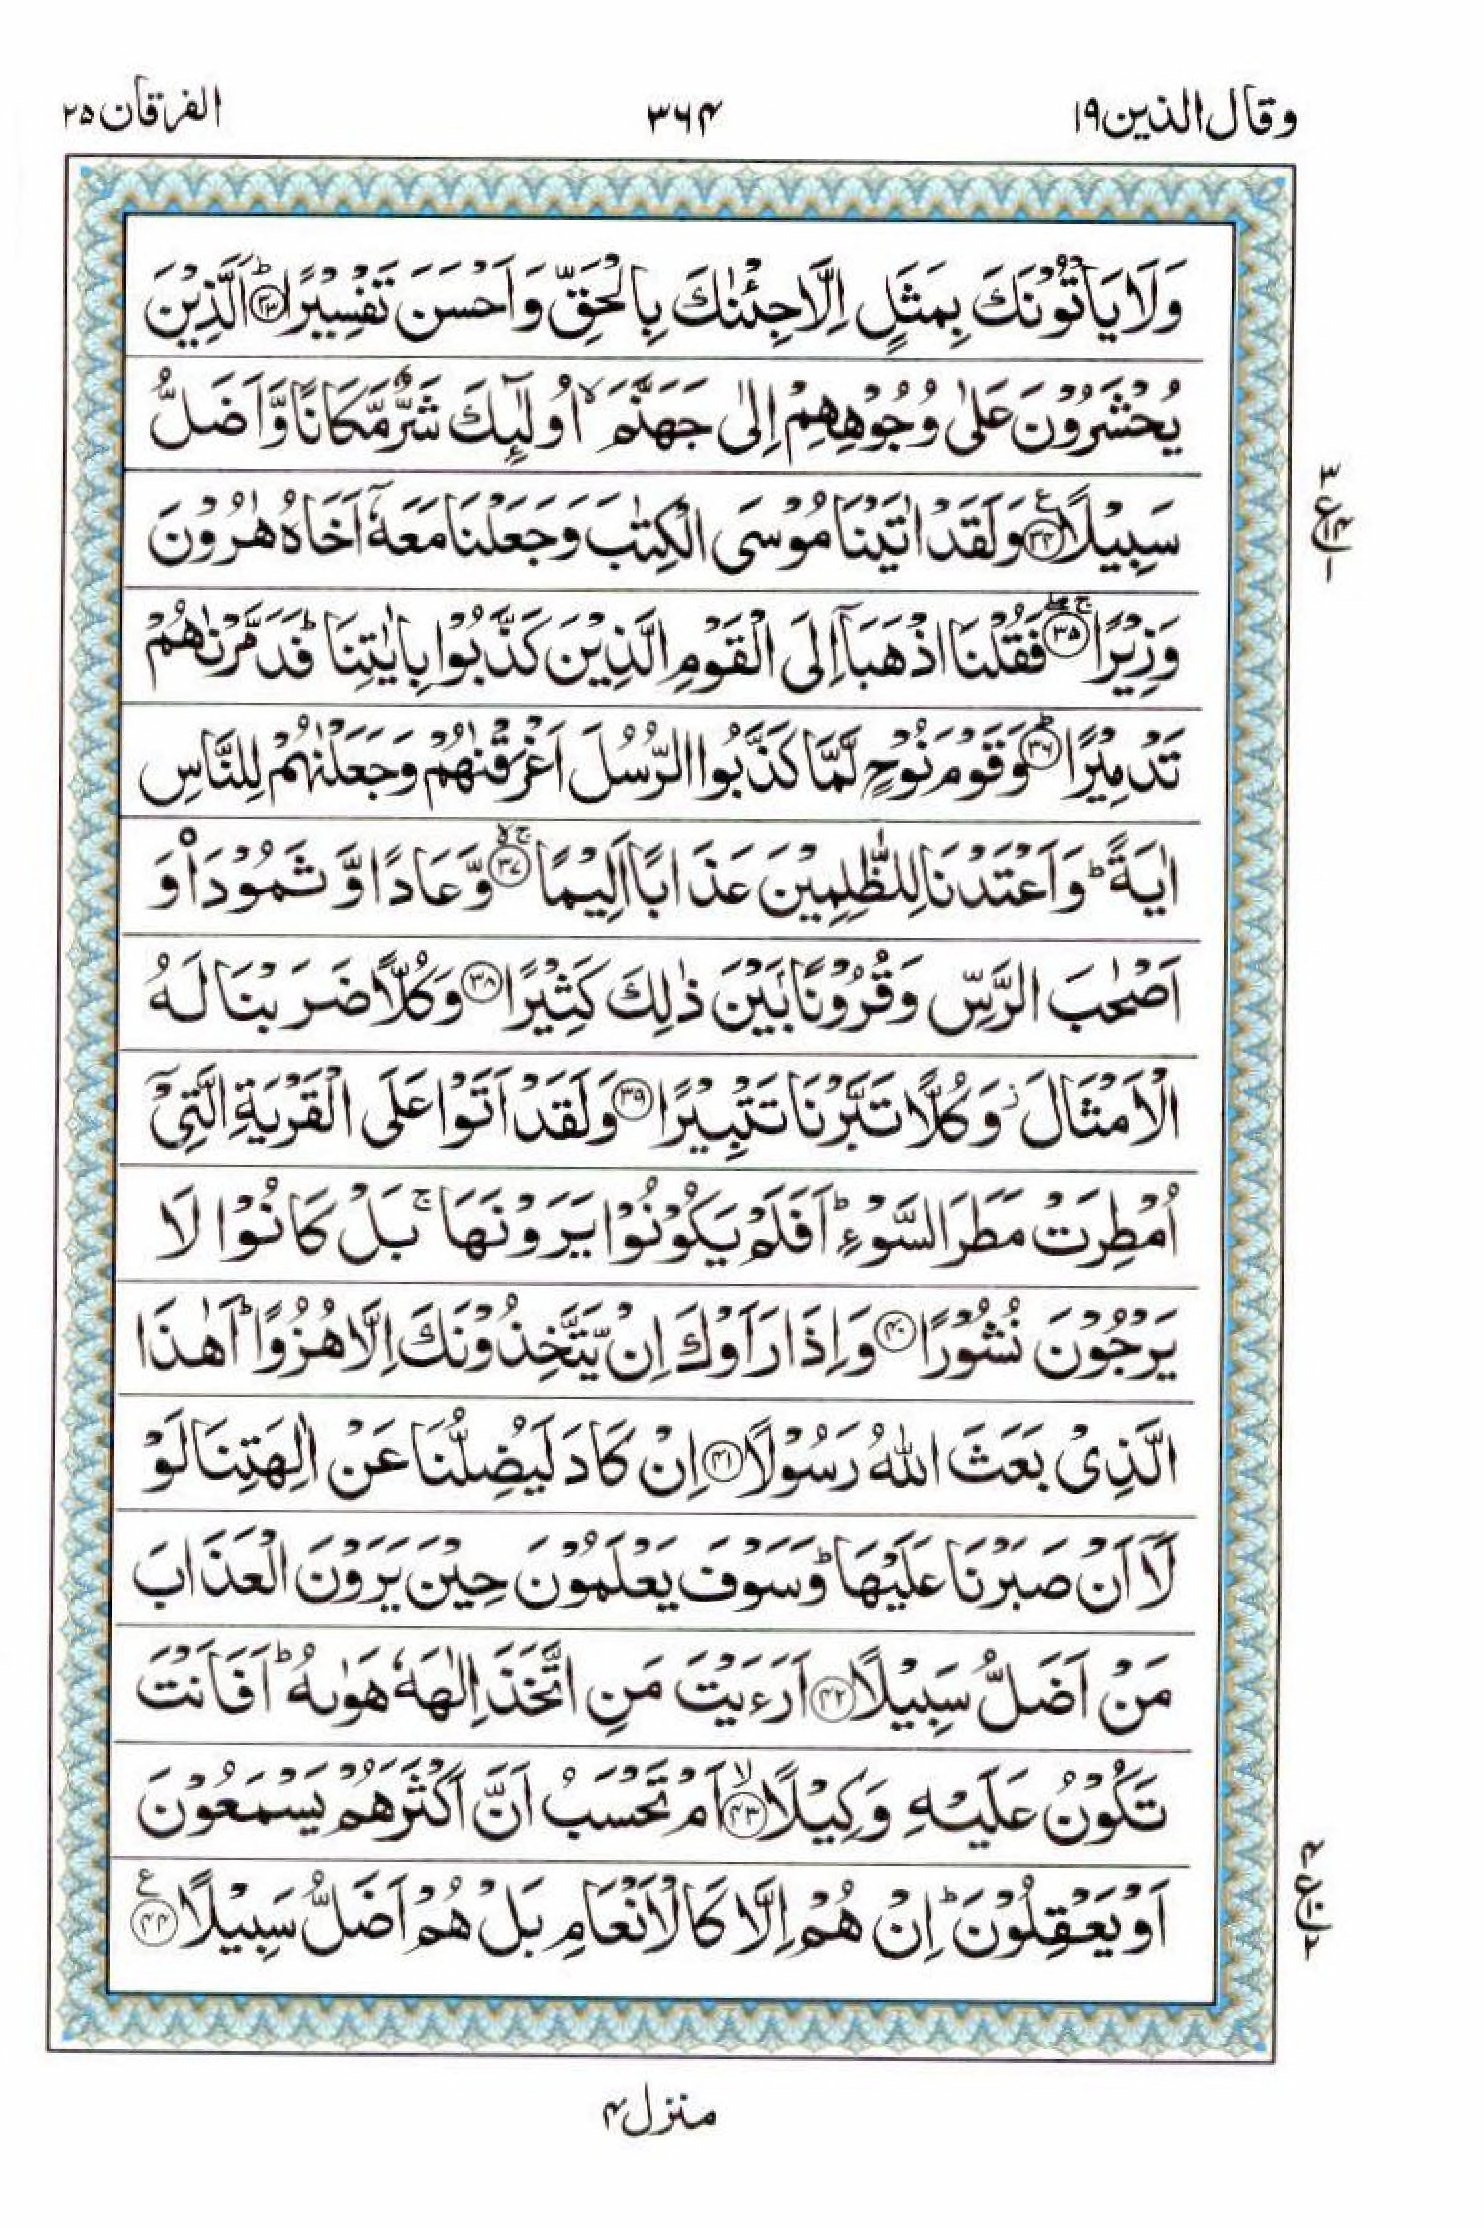 وقال الذين ۱۹
۳۶۴
الفرقان ۲۵
وَلَا يَاْتُوْنَكَ بِمَثَلٍ اِلَّا جِئْنٰكَ بِالْحَقِّ وَاَحْسَنَ تَفْسِيْرًا ؕ ﴿۳۳﴾ اَلَّذِيْنَ
يُحْشَرُوْنَ عَلٰى وُجُوْهِهِمْ اِلٰى جَهَنَّمَ ۙ اُولٰٓئِكَ شَرٌّ مَّكَانًا وَّاَضَلُّ
سَبِيْلًا ﴿۳۴﴾ ع وَلَقَدْ اٰتَيْنَا مُوْسَى الْكِتٰبَ وَجَعَلْنَا مَعَهٗۤ اَخَاهُ هٰرُوْنَ
وَزِيْرًا ﴿۳۵﴾ ۚ ۖ فَقُلْنَا اذْهَبَاۤ اِلَى الْقَوْمِ الَّذِيْنَ كَذَّبُوْا بِاٰيٰتِنَا ؕ فَدَمَّرْنٰهُمْ
تَدْمِيْرًا ؕ ﴿۳۶﴾ وَقَوْمَ نُوْحٍ لَّمَّا كَذَّبُوا الرُّسُلَ اَغْرَقْنٰهُمْ وَجَعَلْنٰهُمْ لِلنَّاسِ
اٰيَةً ؕ وَاَعْتَدْنَا لِلظّٰلِمِيْنَ عَذَابًا اَلِيْمًا ﴿۳۷﴾ ۚ ۙ وَّعَادًا وَّثَمُوْدَا۟ وَ
اَصْحٰبَ الرَّسِّ وَقُرُوْنًۢا بَيْنَ ذٰلِكَ كَثِيْرًا ﴿۳۸﴾ وَكُلًّا ضَرَبْنَا لَهُ
الْاَمْثَالَ ؗ وَكُلًّا تَبَّرْنَا تَتْبِيْرًا ﴿۳۹﴾ وَلَقَدْ اَتَوْا عَلَى الْقَرْيَةِ الَّتِيْۤ
اُمْطِرَتْ مَطَرَ السَّوْءِ ؕ اَفَلَمْ يَكُوْنُوْا يَرَوْنَهَا ۚ بَلْ كَانُوْا لَا
يَرْجُوْنَ نُشُوْرًا ﴿۴۰﴾ وَاِذَا رَاَوْكَ اِنْ يَّتَّخِذُوْنَكَ اِلَّا هُزُوًا ؕ اَهٰذَا
الَّذِيْ بَعَثَ اللّٰهُ رَسُوْلًا ﴿۴۱﴾ اِنْ كَادَ لَيُضِلُّنَا عَنْ اٰلِهَتِنَا لَوْ
لَاۤ اَنْ صَبَرْنَا عَلَيْهَا ؕ وَسَوْفَ يَعْلَمُوْنَ حِيْنَ يَرَوْنَ الْعَذَابَ
مَنْ اَضَلُّ سَبِيْلًا ﴿۴۲﴾ اَرَءَيْتَ مَنِ اتَّخَذَ اِلٰهَهٗ هَوٰىهُ ؕ اَفَاَنْتَ
تَكُوْنُ عَلَيْهِ وَكِيْلًا ۙ ﴿۴۳﴾ اَمْ تَحْسَبُ اَنَّ اَكْثَرَهُمْ يَسْمَعُوْنَ
اَوْ يَعْقِلُوْنَ ؕ اِنْ هُمْ اِلَّا كَالْاَنْعَامِ بَلْ هُمْ اَضَلُّ سَبِيْلًا ﴿۴۴﴾ ع
۳
ع ۱۴
۱
۴
ع ۱۰
۲
منزل ۴